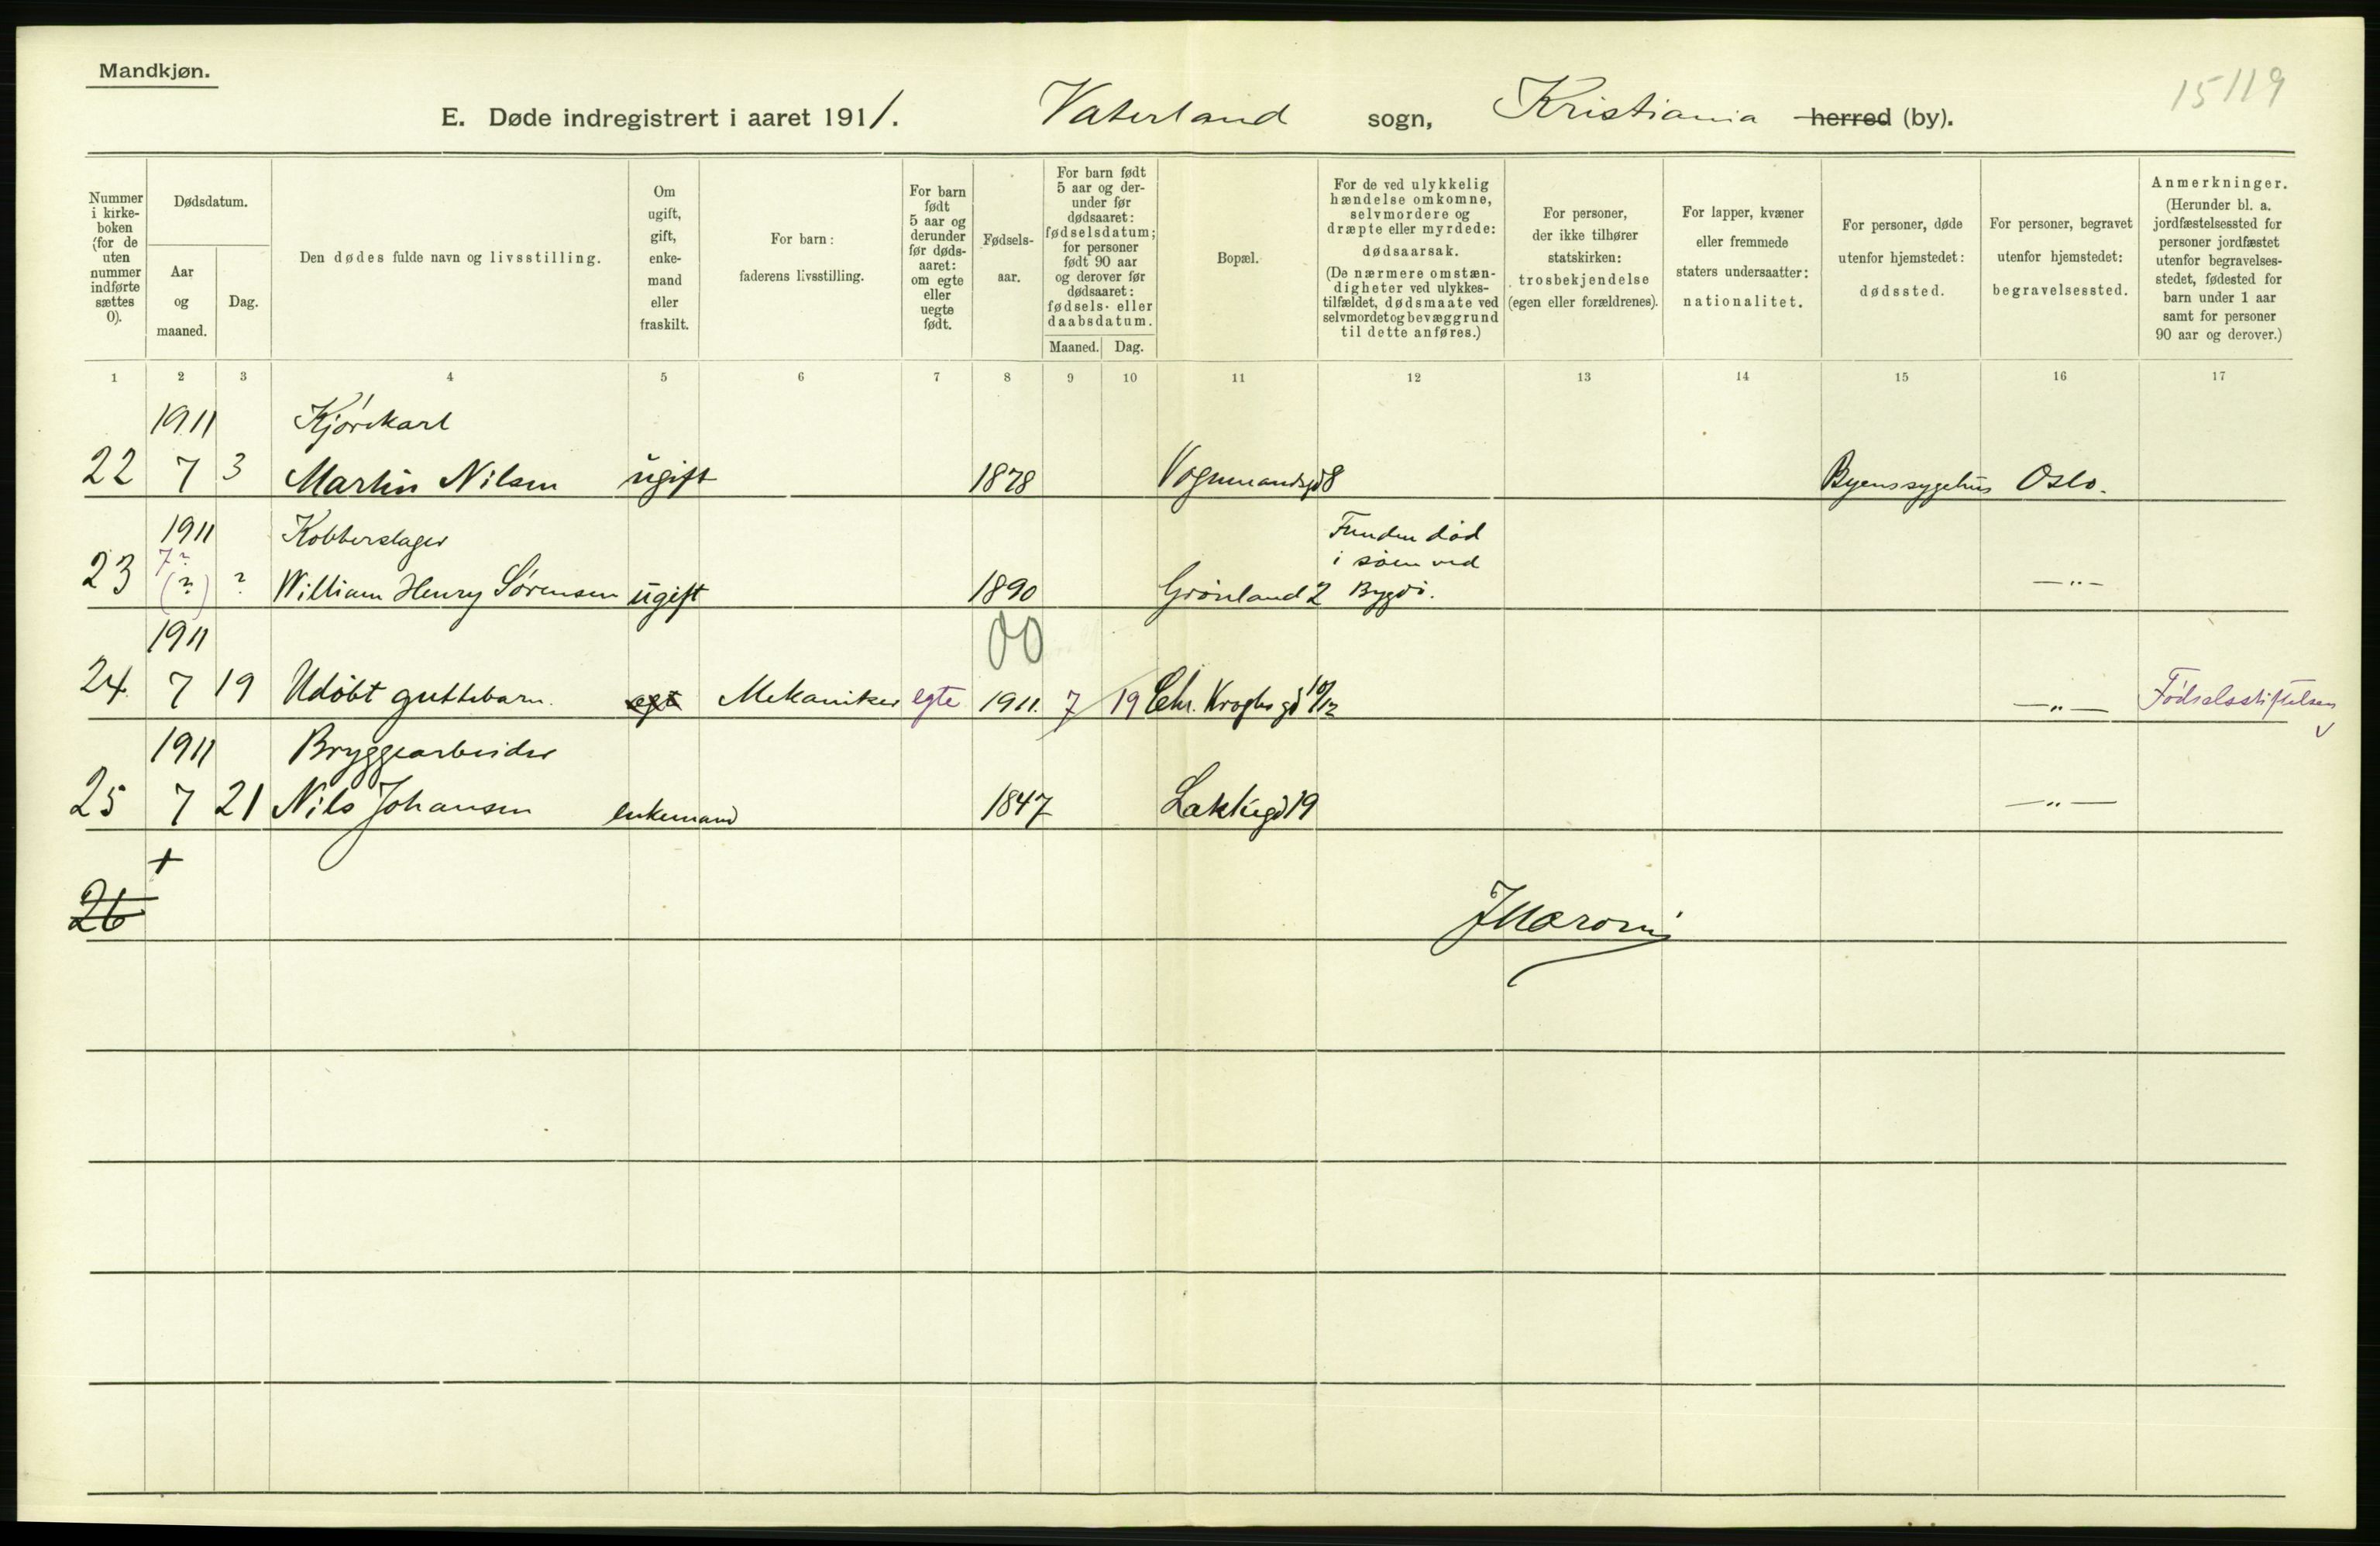 Mandkjøn.
15119
E. Døde indregistrert i aaret 1911. Vaterland sogn, Kristiania herred (by).
Nummer i kirke-boken (for de uten nummer indførte sættes 0).
Dødsdatum.
Aar og maaned.
Dag.
Den dødes fulde navn og livsstilling.
Om ugift, gift, enke-mand eller fraskilt.
For barn: faderens livsstilling.
For barn født 5 aar og derunder før døds-aaret: om egte eller uegte født.
Fødsels-aar.
For barn født 5 aar og der-under før dødsaaret: fødselsdatum; for personer født 90 aar og derover før dødsaaret: fødsels- eller daabsdatum.
Maaned. Dag.
Bopæl.
For de ved ulykkelig hændelse omkomne, selvmordere og dræpte eller myrdede: dødsaarsak. (De nærmere omstæn-digheter ved ulykkes-tilfældet, dødsmaate ved selvmordet og bevæggrund til dette anføres.)
For personer, der ikke tilhører statskirken: trosbekjendelse (egen eller forældrenes).
For lapper, kvæner eller fremmede staters undersaatter: nationalitet.
For personer, døde utenfor hjemstedet: dødssted.
For personer, begravet utenfor hjemstedet: begravelsessted.
Anmerkninger. (Herunder bl. a. jordfæstelsessted for personer jordfæstet utenfor begravelses-stedet, fødested for barn under 1 aar samt for personer 90 aar og derover.)
1 2 3 4 5 6 7 8 9 10 11 12 13 14 15 16 17
1911 Kjørekarl
22 7 3 Martin Nilsen ugift 1878 Vognmandsgd 8 Byens sygehus Oslo.
1911 Kobberslager Funden død
7? i søen ved
23 (?) ? William Henry Sørensen ugift 1890 Grønland 2 Bygdö. —"—
1911 00
24. 7 19 Udöbt guttebarn. egt Mekaniker egte 1911. 7 19 Chr. Kroghs gd 10/12 —"— Födselsstiftelsen
1911 Bryggearbeider
25 7 21 Nils Johansen enkemand 1847 Lakkegd 19 —"—
+
26